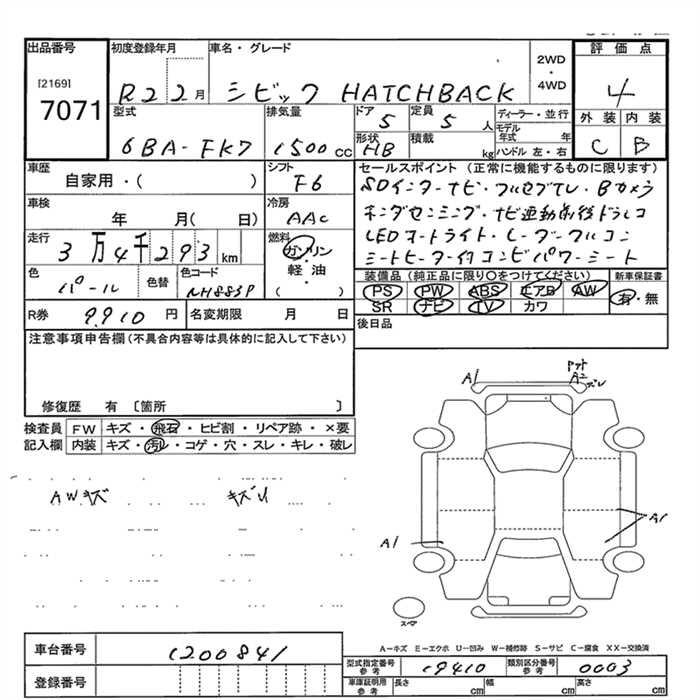 出品番号 初度登録年月 車名・グレード 2WD・4WD 評価点
[2169]
7071
R2 2月 シビック HATCHBACK 4
型式 排気量 ドア 定員 ディーラー・並行 外装 内装
6BA-FK7 1500cc 5 5人 モデル年式 年 C B
形状 HB 積載 kg ハンドル 左・右
車歴 シフト セールスポイント (正常に機能するものに限ります)
自家用・( ) F6 SDインターナビ・フルセグTV・Bカメラ
車検 冷房 ホンダセンシング・ナビ連動前後ドラレコ
年 月( 日) AAC LEDオートライト・レーダークルコン
走行 燃料 シートヒーター付コンビパワーシート
3万4千293km ガソリン・軽油 ( )
色 色替 色コード 装備品 (純正品に限り○をつけてください) 新車保証書
パール NH883P PS PW ABS エアB AW 有・無
SR ナビ TV カワ
R券 9910円 名変期限 月 日 後日品
注意事項申告欄 (不具合内容等は具体的に記入して下さい)
修復歴 有 〔箇所 〕
検査員記入欄 FW キズ・飛石・ヒビ割・リペア跡・×要
内装 キズ・汚レ・コゲ・穴・スレ・キレ・破レ
A1 A2 ズレ
AWキズ キズ
A1 A1
スペア
A-キズ E-エクボ U-凹み W-補修跡 S-サビ C-腐食 XX-交換済
車台番号 1200841
型式指定番号参考 19410 類別区分番号参考 0003
登録番号 車庫証明用参考 長さ cm 幅 cm 高さ cm